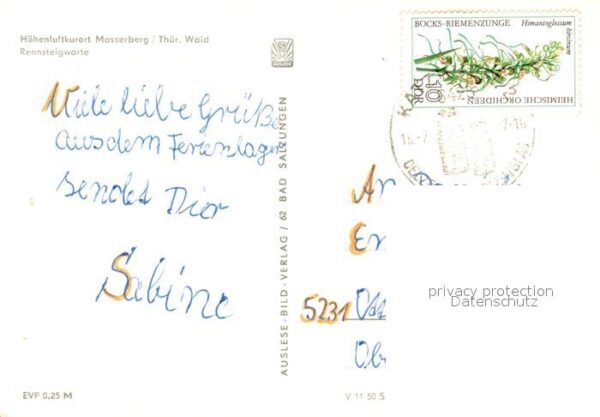 Höhenluftkurort Masserberg / Thür. Wald
Rennsteigwarte
Viele liebe Grüße
aus dem Ferienlager
sendet Dior
Sabine
EVP 0,25 M
AUSLESE-BILD-VERLAG / 62 BAD SALZUNGEN
V 11 50 S
BOCKS-RIEMENZUNGE
Himantoglossum hircinum
HEIMISCHE ORCHIDEEN
DDR 10
An
5231
privacy protection
Datenschutz